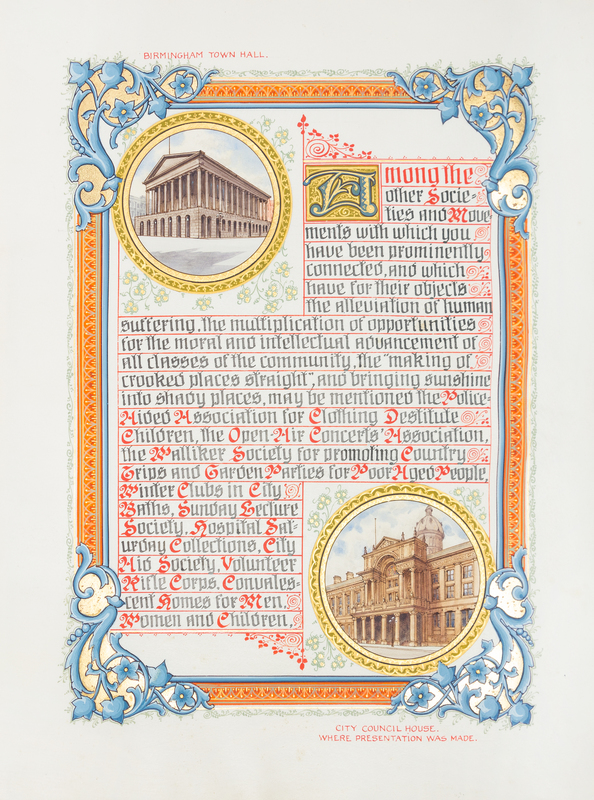 BIRMINGHAM TOWN HALL.
Among the
other Socie-
ties and Move
ments with which you
have been prominently
connected, and which
have for their objects
the alleviation of human
suffering, the multiplication of opportunities
for the moral and intellectual advancement of
all classes of the community, the "making of
crooked places straight", and bringing sunshine
into shady places, may be mentioned the Police-
Aided Association for Clothing Destitute
Children, the Open-Air Concerts' Association,
the Walliker Society for promoting Country
Trips and Garden Parties for Poor Aged People,
Winter Clubs in City
Baths, Sunday Lecture
Society, Hospital Sat-
urday Collections, City
Aid Society, Volunteer
Rifle Corps, Convales-
cent Homes for Men,
Women and Children,
CITY COUNCIL HOUSE.
WHERE PRESENTATION WAS MADE.